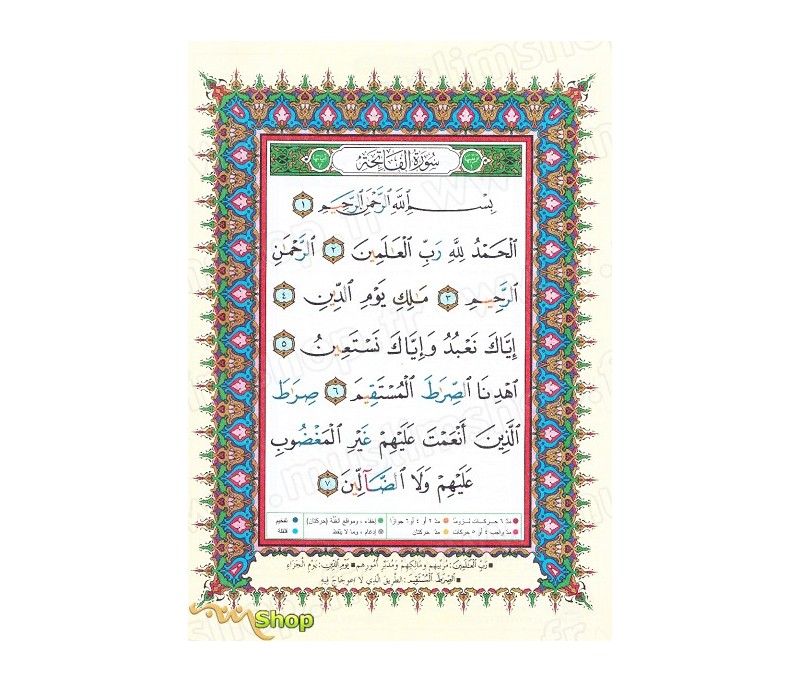 سُورَةُ الْفَاتِحَةِ
بِسْمِ اللَّهِ الرَّحْمَٰنِ الرَّحِيمِ ١
الْحَمْدُ لِلَّهِ رَبِّ الْعَالَمِينَ ٢ الرَّحْمَٰنِ
الرَّحِيمِ ٣ مَالِكِ يَوْمِ الدِّينِ ٤
إِيَّاكَ نَعْبُدُ وَإِيَّاكَ نَسْتَعِينُ ٥
اهْدِنَا الصِّرَاطَ الْمُسْتَقِيمَ ٦ صِرَاطَ
الَّذِينَ أَنْعَمْتَ عَلَيْهِمْ غَيْرِ الْمَغْضُوبِ
عَلَيْهِمْ وَلَا الضَّآلِّينَ ٧
مدّ ٦ حركات لزوماً مدّ ٢ أو ٤ أو ٦ جوازاً إخفاء، ومواقع الغنّة (حركتان) تفخيم
مدّ واجب ٤ أو ٥ حركات مدّ حركتان إدغام، وما لا يُلفظ قلقلة
رَبِّ الْعَالَمِينَ: مُرَبِّيهِم وَمَالِكِهِمْ وَمُدَبِّرِ أُمُورِهِم يَوْمِ الدِّينِ: يَوْمِ الْجَزَاءِ
الصِّرَاطَ الْمُسْتَقِيمَ: الطَّرِيقَ الَّذِي لَا اعْوِجَاجَ فِيهِ
Shop